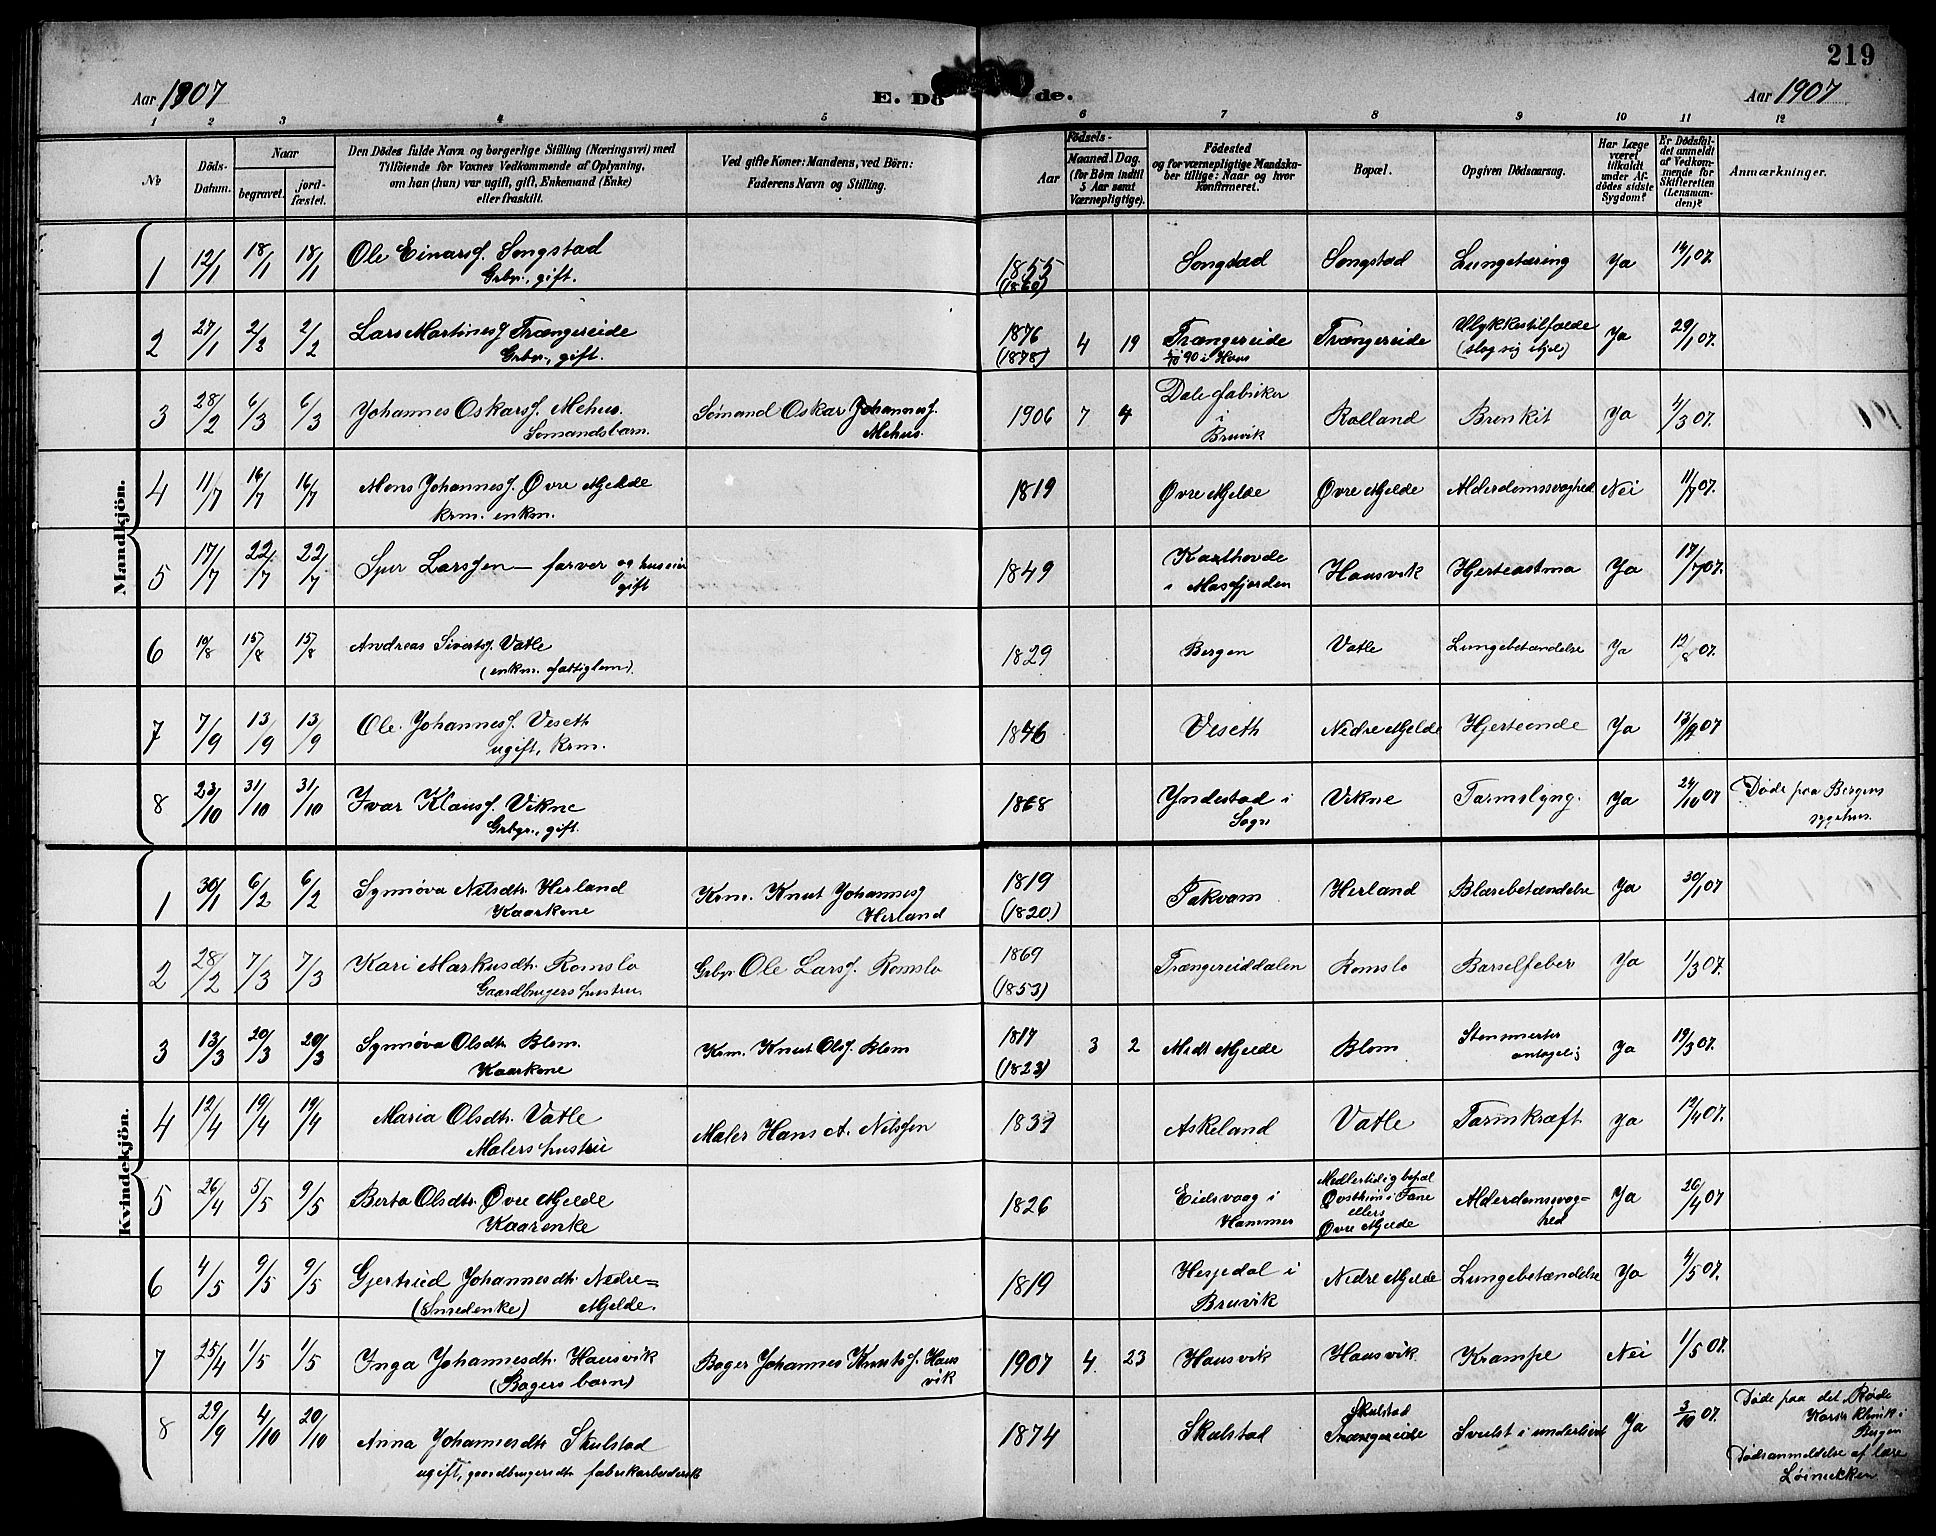 219
Aar 1907
E. Dö de.
Aar 1907
1 2 3 4 5 6 7 8 9 10 11 12
№
Döds-Datum.
Naar
begravet.
jordfæstet.
Den Dödes fulde Navn og borgerlige Stilling (Næringsvei) med
Tilföiende for Voxnes Vedkommende af Oplysning,
om han (hun) var ugift, gift, Enkemand (Enke)
eller fraskilt.
Ved gifte Koner: Mandens, ved Börn:
Faderens Navn og Stilling.
Födsels-
Aar
Maaned. Dag.
(for Börn indtil
5 Aar samt
Værnepligtige).
Födested
og for værnepligtige Mandska-
ber tillige: Naar og hvor
konfirmeret.
Bopæl.
Opgiven Dödsaarsag.
Har Læge
været
tilkaldt
under Af-
dödes sidste
Sygdom?
Er Dödsfal-
det anmeldt
af Vedkom-
mende for
Skifteretten
(Lensman-
den)?
Anmærkninger.
Mandkjön.
1 12/1 18/1 18/1 Ole Einarsf. Songstad 1855 Songstad Songstad Lungetæring Ja 14/1 07.
Grbr., gift. (1860)
2 27/1 2/2 2/2 Lars Martinesf. Trængereide 1876 4 19 Trængereide Trængereide Ulykkestilfælde Ja 29/1 07.
Grbr., gift. (1878) 90 i Haus (slog sig ihjel)
3 28/2 6/3 6/3 Johannes Oskarsf. Mehus. Sømand Oskar Johannesf. 1906 7 4 Dale fabriker Rolland Bronkit Ja 4/3 07.
Sømandsbarn. Mehus. i
Bruvik
4 11/7 16/7 16/7 Mons Johannesf. Øvre Mjelde 1819 Øvre Mjelde Øvre Mjelde Alderdomssvaghed Nei 11/7 07.
krm. enkm.
5 17/7 22/7 22/7 Sjur Larssen — farver og huseier 1849 Kaalhovde Hausvik Hjerteastma Ja 17/7 07.
gift i Masfjorden
6 10/8 15/8 15/8 Andreas Sivertsf. Vatle 1829 Bergen Vatle Lungebetændelse Ja 12/8 07.
(enkm. fattiglem).
7 7/9 13/9 13/9 Ole Johannesf. Veseth 1846 Veseth Nedre Mjelde Hjerteonde Ja 13/9 07
ugift, krm.
8 23/10 31/10 31/10 Ivar Klausf. Vikne 1868 Yndestad i Vikne Tarmslyng. Ja 24/10 07 Døde paa Bergens
Grbr., gift. Sogn sygehus.
Kvindekjön.
1 30/1 6/2 6/2 Synnøva Nilsdtr. Herland Krm. Knut Johannesf 1819 Takvam Herland Blærebetændelse Ja 30/1 07
Kaarkone Herland (1820)
2 28/2 7/3 7/3 Kari Markusdtr. Romslo Grbr. Ole Larsf. Romslo 1869 Trængereiddalen Romslo Barselfeber Ja 1/3 07.
Gaardbrugers hustru (1853)
3 13/3 20/3 20/3 Synnøva Olsdtr. Blom. Krm. Knut Olsf. Blom 1817 3 2 Midt Mjelde Blom Ja 19/3 07.
Kaarkone (1823)
4 12/4 19/4 19/4 Maria Olsdtr. Vatle Maler Hans A. Nilssen 1839 Askeland Vatle Tarmkræft Ja 12/4 07.
Malers hustru
5 26/4 5/5 9/5 Berta Olsdtr. Øvre Mjelde 1826 Eidsvaag i Midlertidig bopæl Alderdomsvag- Ja 26/4 07
Kaarenke Hammer i Fane hed
ellers
Øvre Mjelde
6 4/5 9/5 9/5 Gjertrud Johannesdtr. Nedre= 1819 Hesjedal i Nedre Mjelde Lungebetændelse Ja 4/5 07.
(Smedenke) Mjelde. Bruvik
7 25/4 1/5 1/5 Inga Johannesdtr. Hausvik Bager Johannes Knutsf. Haus 1907 4. 23 Hausvik Hausvik. Krampe Nei 1/5 07.
(Bagers barn) vik
8 29/9 4/10 20/10 Anna Johannesdtr. Skulstad 1874 Skulstad Skulstad Svulst i underlivet Ja 3/10 07. Døde paa det Røde
ugift, gaardbrugersdtr. fabrikarbeiderske Trængereide Kors's klinik i
Bergen
Dødsanmeldelse af læge